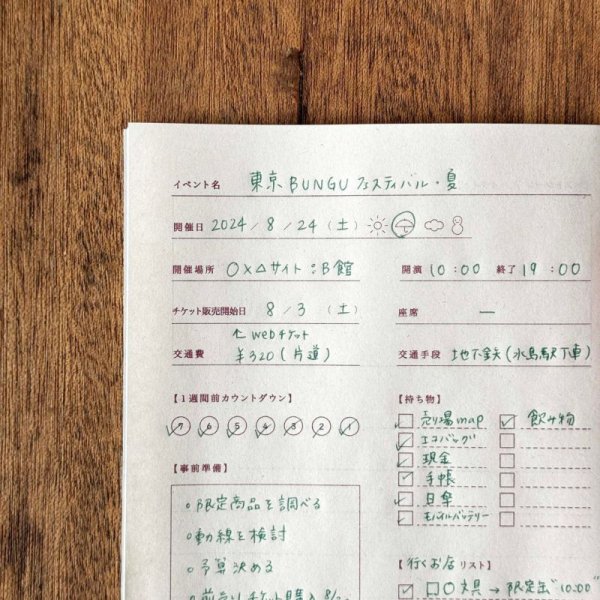 イベント名 東京 BUNGU フェスティバル・夏
開催日 2024 / 8 / 24 (土)
開催場所 〇×△サイト:B館 開演 10:00 終了 19:00
チケット販売開始日 8 / 3 (土) 座席 ー
↑ webチケット
交通費 ¥320 (片道) 交通手段 地下鉄(水島駅下車)
【1週間前カウントダウン】 【持ち物】
7 6 5 4 3 2 1
売り場map 飲み物
エコバッグ
現金
手帳
日傘
モバイルバッテリー
【事前準備】
○限定商品を調べる
○動線を検討
○予算決める
○前売りチケット購入 8/
【行くお店リスト】
□〇文具→限定缶"10:00"